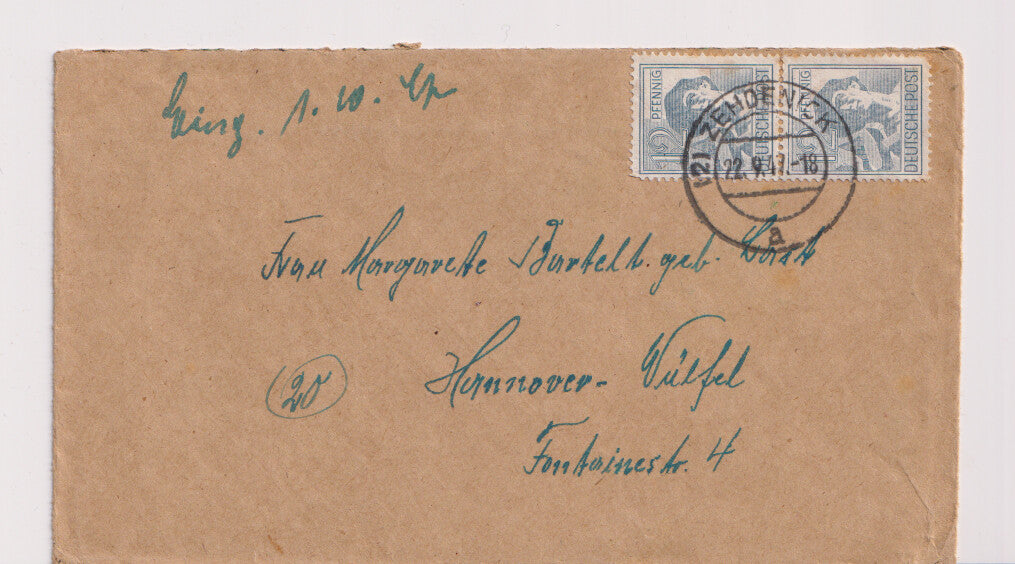 Eing. 1. 10.
12 PFENNIG DEUTSCHE POST
12 PFENNIG DEUTSCHE POST
(2) ZEHDENICK
22. 9. 47.-18
a
Frau Margarete Bartelt. geb.
(20) Hannover- Wülfel
Fontainestr. 4